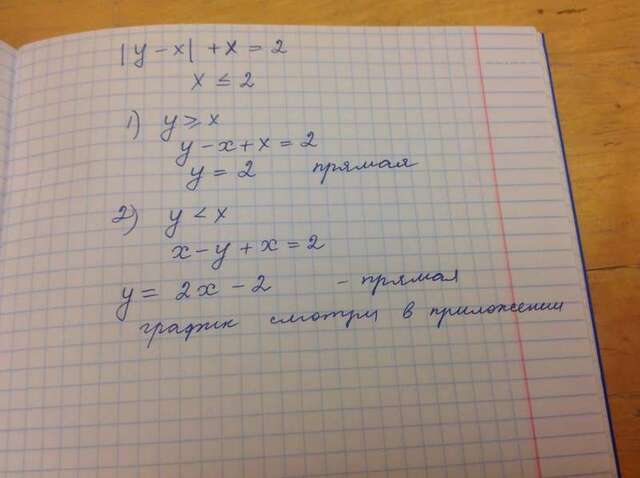 |y - x| + x = 2
x ≤ 2
1) y ⩾ x
y - x + x = 2
y = 2 прямая
2) y < x
x - y + x = 2
y = 2x - 2 - прямая
график смотри в приложении